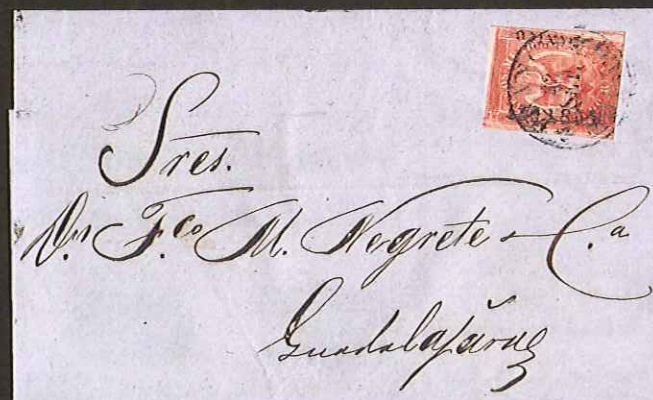 Sres.
Dn. F.co M. Negrete y C.a
Guadalajara